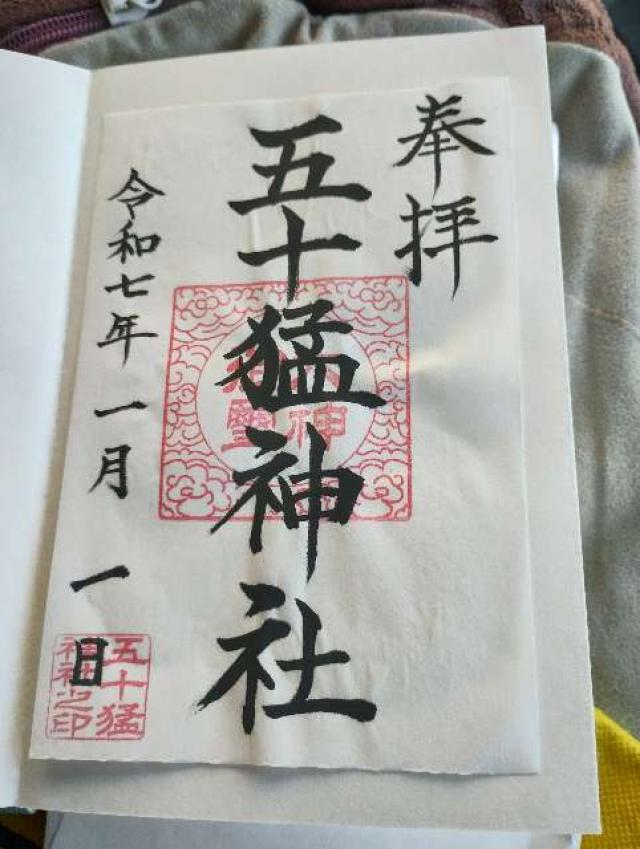 奉拝
五十猛神社
令和七年一月一日
五十猛
神社之印